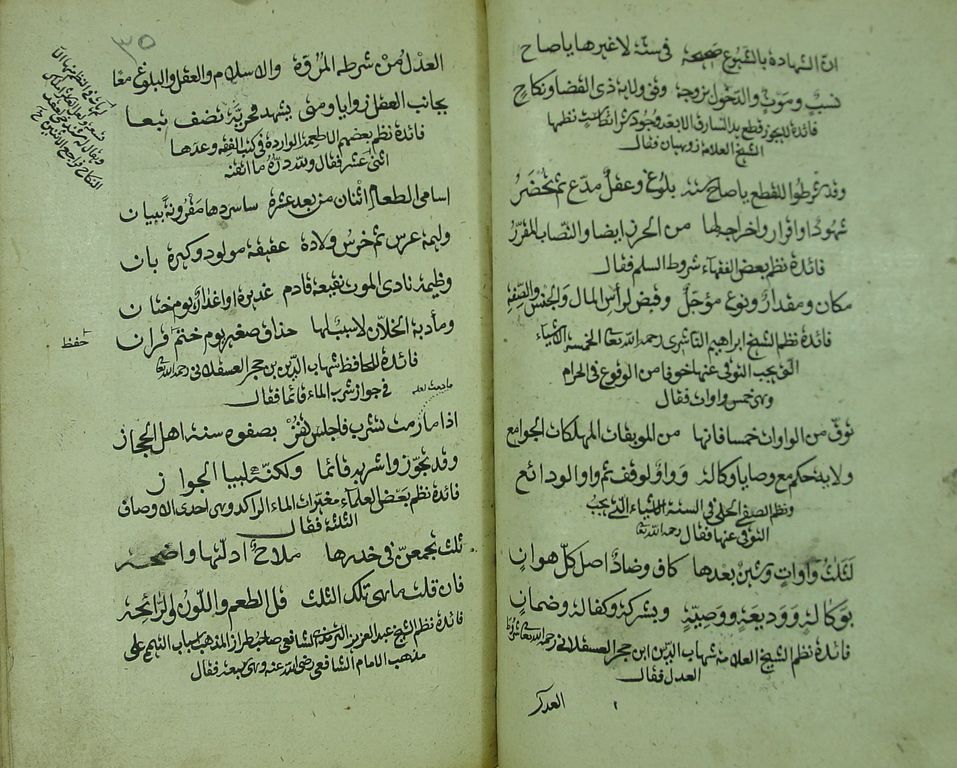 انّ الشهادة بالشيوع صحيحة في ستة لا غيرها يا صاح
نسبٌ وموتٌ والدخول بزوجة وفي ولاية ذي القضا ونكاح
فائدة لا يجوز قطع يد السارق الا بعد وجود شرائط نظمها
الشيخ العلامة وهبان فقال
وقد شرطوا للقطع يا صاح ستة بلوغ وعقل مدّع ثم تحضر
شهودٌ او اقرار واخراجه لها من الحرز ايضا والنصاب المقرّر
فائدة نظم بعض الفقهاء شروط السلم فقال
مكان ومقدارٌ ونوع مؤجّل وقبض لرأس المال والجنس والصفه
فائدة نظم الشيخ ابراهيم الناشري رحمه الله تعا الخمسة الاشياء
التي يجب التوقي عنها خوفا من الوقوع في الحرام
وهي خمس واوات فقال
توقّ من الواوات خمسا فانها من الموبقات المهلكات الجوامع
ولاية حكم مع وصايا وكالة وواوٌ لوقف ثم واو الودائع
ونظم الصفي الحلي في الستة الاشياء التي يجب
التوقي عنها فقال رحمه الله تعا
لثلث واوات وشين بعدها كاف وضادٌ اصل كلّ هوان
بوكالة ووديعة ووصيّة وبشركة وكفالة وضمان
فائدة نظم الشيخ العلامة شهاب الدين ابن حجر العسقلاني رحمه الله تعا شروط
العدل فقال
العدل
٣٥
العدل من شرطه المروّة والاسلام والعقل والبلوغ معا
يجانب العقل زوايا ومتى يشهد فحريّة تضف تبعا
فائدة نظم بعضهم الاطعمة الواردة في كتب الفقه وعدها
اثنى عشر فقال ولله درّه ما اتقنه
اسامي الطعام اثنان من بعد عشرة ساسردها مقرونة ببيان
وليمة عرس ثم خرس ولادة عقيقة مولود وكيرة بان
وظيمة نادى الموت نقيعة قادم عذيرة او اعذار يوم ختان
ومأدبة الخلان لا سبب لها حذاق صغير يوم ختم قران
حفظ
فائدة للحافظ شهاب الدين بن حجر العسقلاني رحمه الله تعا
في جواز شرب الماء قائما فقال
اذا ما رمت تشرب فاجلس تفز بصفوه سنة اهل الحجاز
وقد تجوّز واشربه قائما ولكنّه لبيا الجواز
فائدة نظم بعض العلماء مغيّرات الماء الراكد وهي احدى الاوصاف
الثلثة فقال
ثلث تجمعن في خدرها ملاحٌ ادلتها واضحة
فان قلت ما هي تلك الثلث فقل الطعم واللون والرائحة
فائدة نظم الشيخ عبد العزيز الشافعي صاحب طراز المذهب اسباب التيمم على
مذهب الامام الشافعي رضي الله عنه وهي سبعة فقال